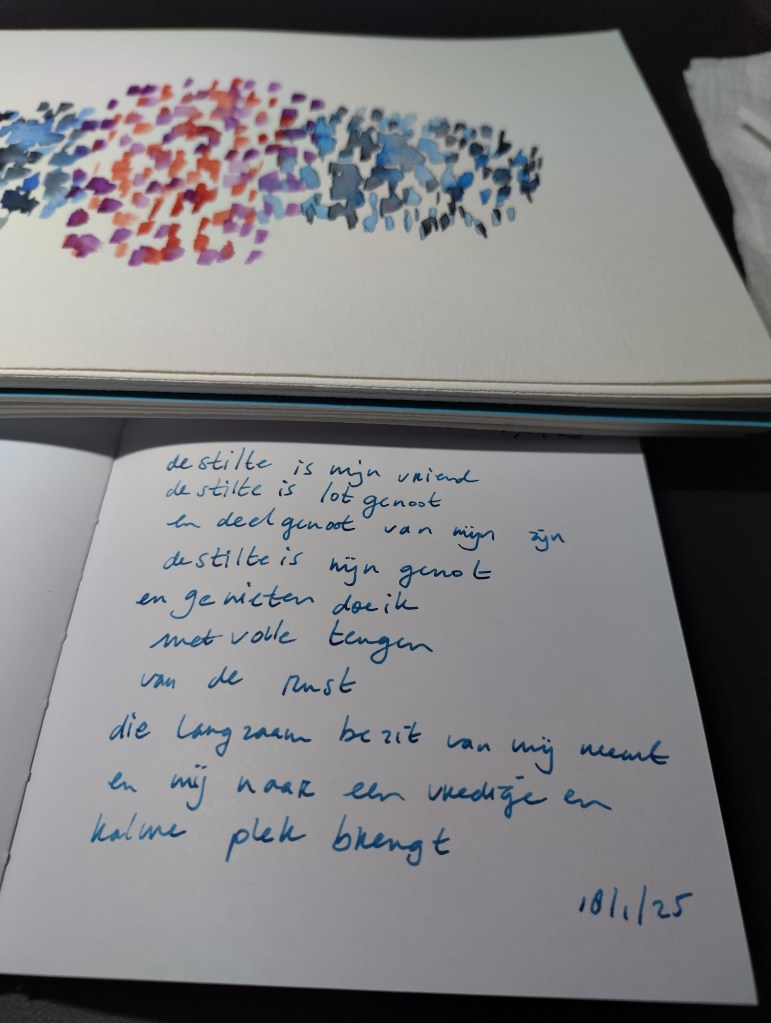 de stilte is mijn vriend
de stilte is lotgenoot
en deelgenoot van mijn zijn
de stilte is mijn genot
en genieten doe ik
met volle teugen
van de rust
die langzaam bezit van mij neemt
en mij naar een vredige en
kalme plek brengt
18/1/25